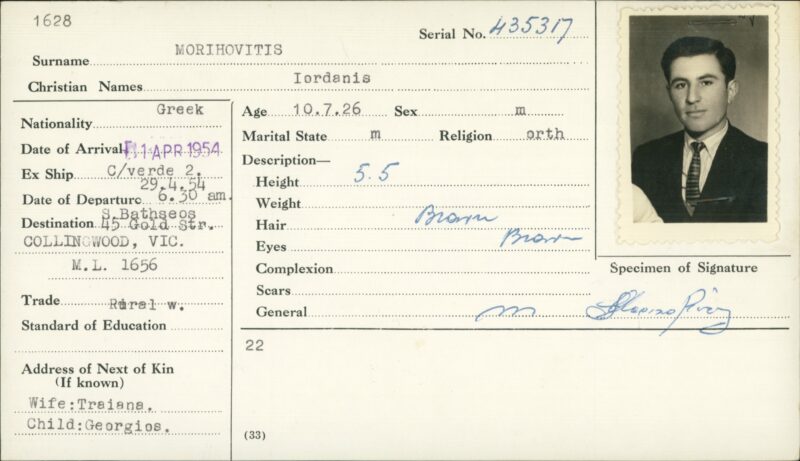 1628
Serial No. 435317
Surname MORIHOVITIS
Christian Names Iordanis
Nationality Greek
Date of Arrival 11 APR 1954
Ex Ship C/verde 2.
29.4.54
Date of Departure 6.30 am.
S.Bathseos
Destination 45 Gold Str.
COLLINGWOOD, VIC.
M.L. 1656
Trade Rural w.
Standard of Education
Address of Next of Kin
(If known)
Wife:Traiana.
Child:Georgios.
Age 10.7.26 Sex m
Marital State m Religion orth
Description—
Height 5.5
Weight
Hair Brown
Eyes Brown
Complexion
Scars
General m
22
(33)
Specimen of Signature